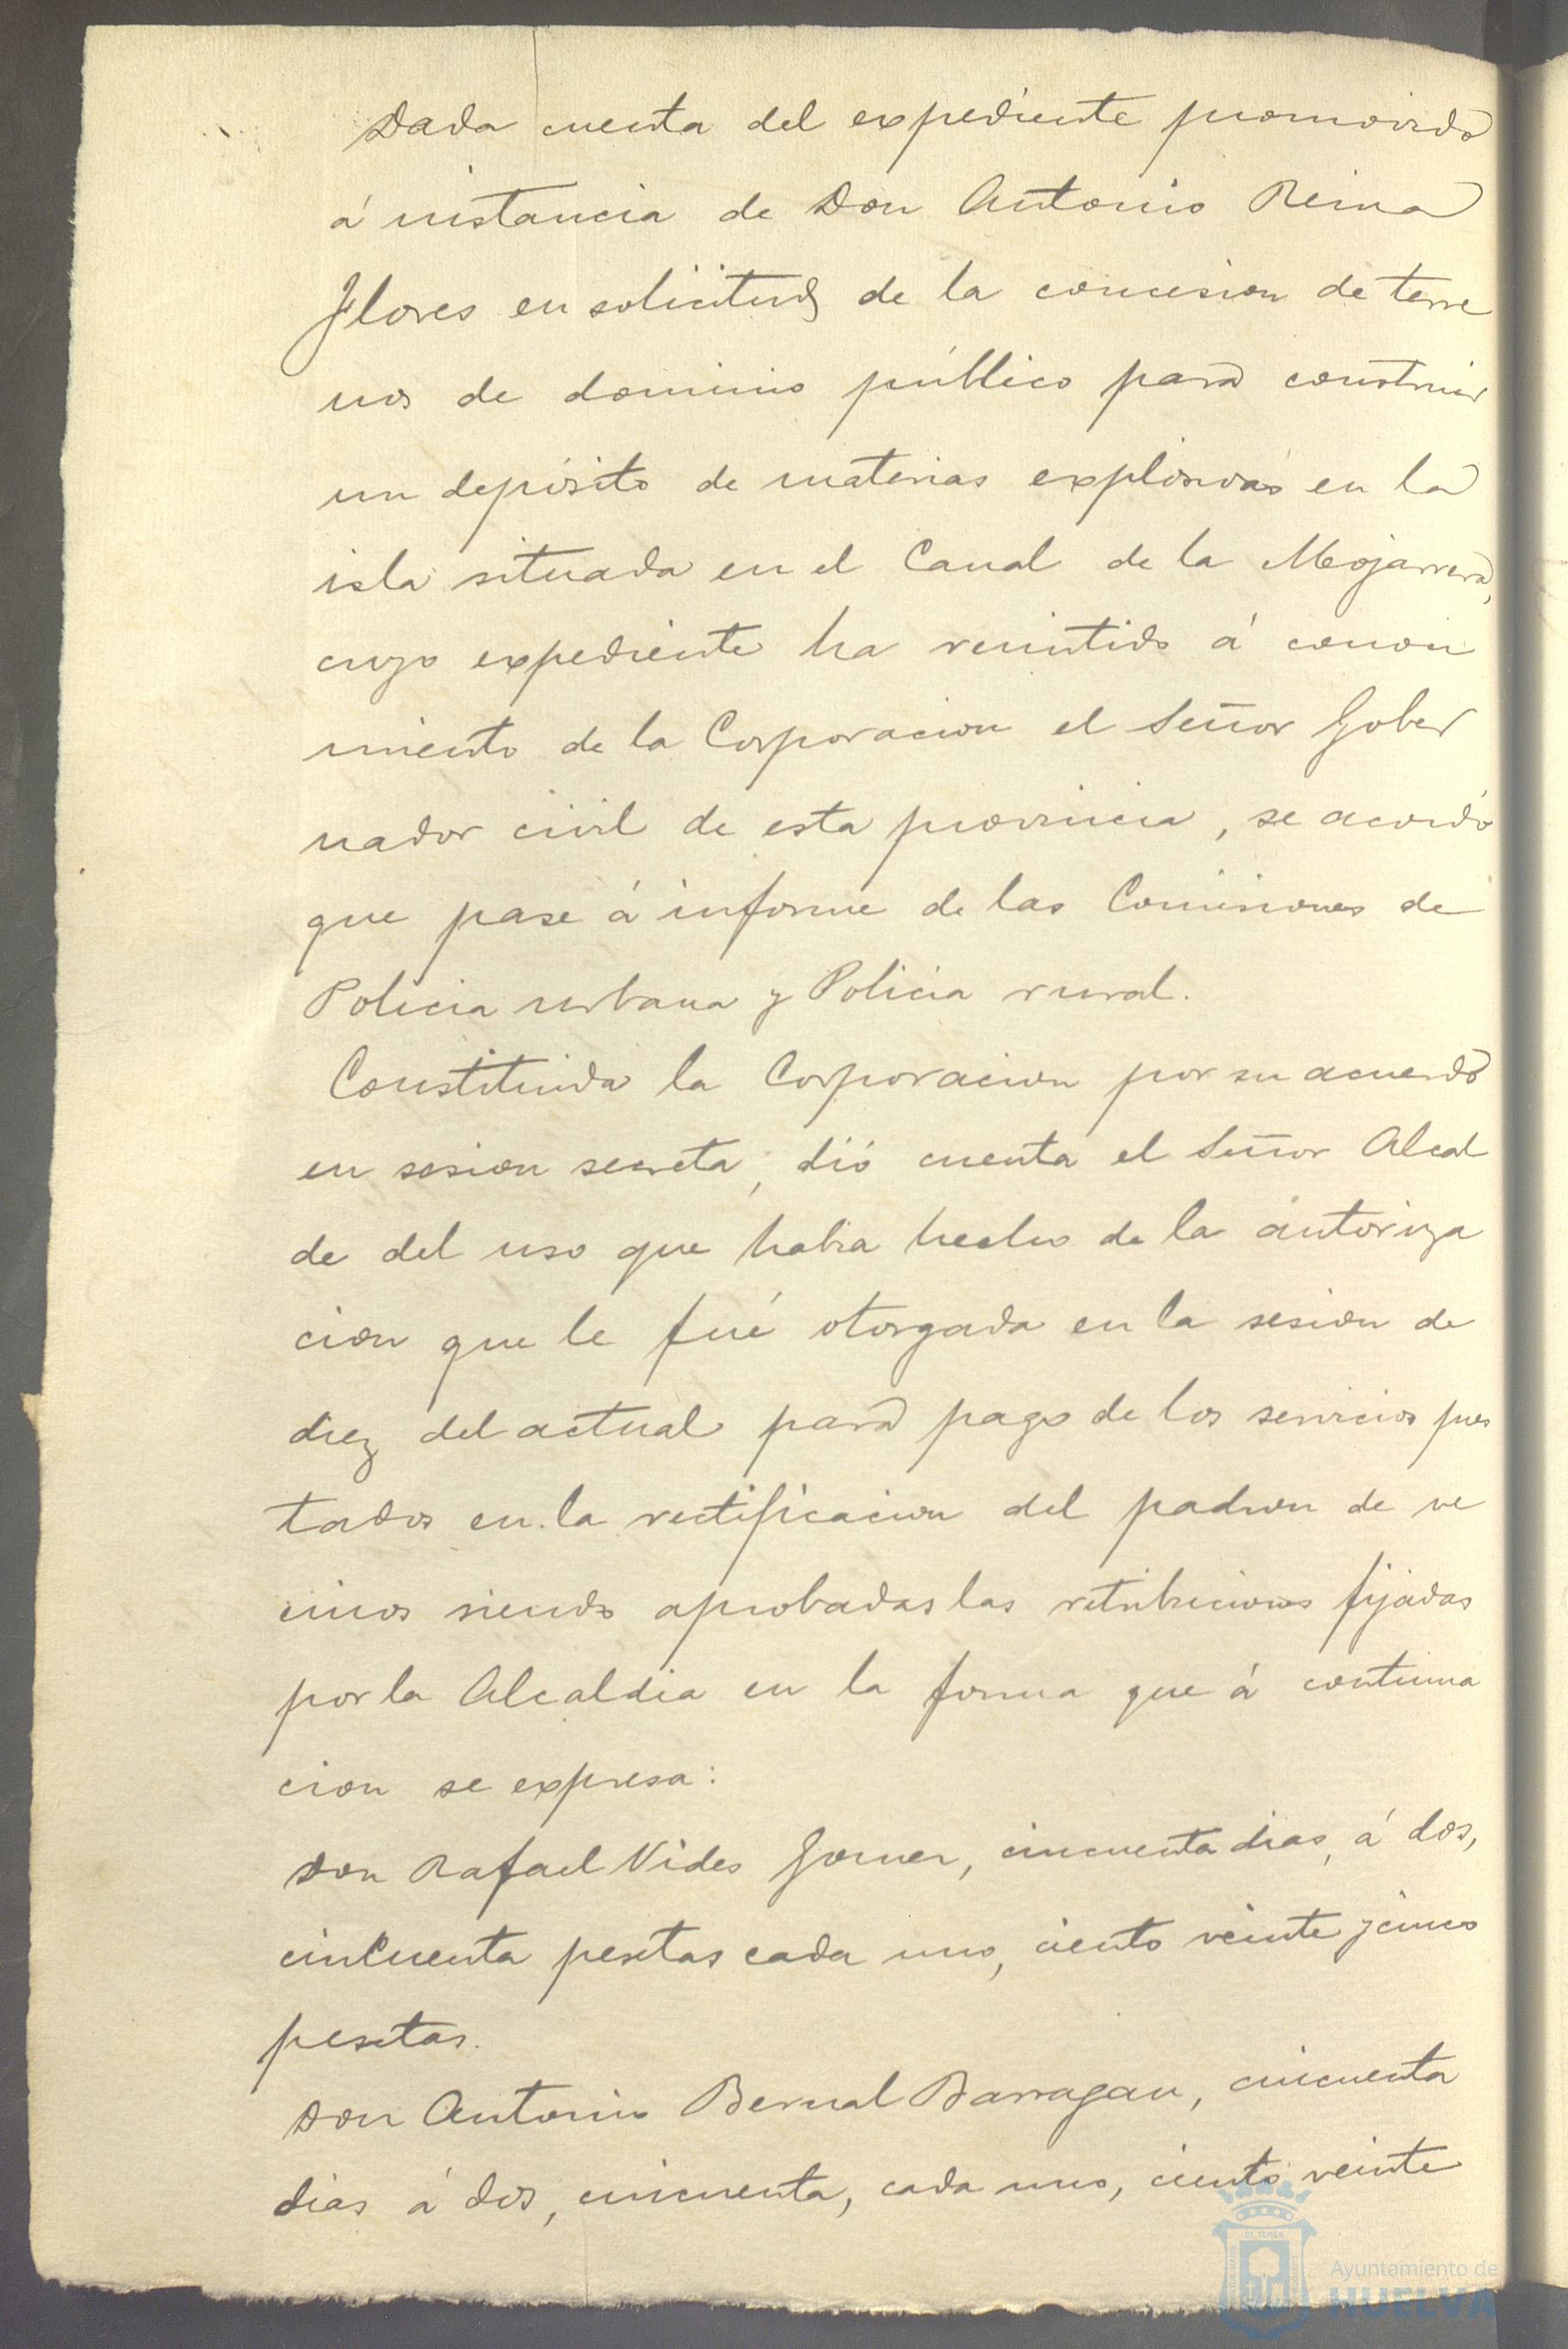 Dada cuenta del expediente promovido
á instancia de Don Antonio Reina
Flores en solicitud de la concesion de terre
nos de dominio público para construir
un depósito de materias explosivas en la
isla situada en el Canal de la Mojarrera,
cuyo expediente ha remitido á conoci
miento de la Corporacion el Señor Gober
nador civil de esta provincia, se acordó
que pase á informe de las Comisiones de
Policia urbana y Policia rural.
Constituida la Corporacion por su acuerdo
en sesion secreta, dió cuenta el Señor Alcal
de del uso que habia hecho de la autoriza
cion que le fué otorgada en la sesion de
diez del actual para pago de los servicios pres
tados en la rectificacion del padron de ve
cinos siendo aprobadas las retribuciones fijadas
por la Alcaldia en la forma que á continua
cion se expresa:
Don Rafael Vides Forner, cincuenta dias, á dos,
cincuenta pesetas cada uno, ciento veinte y cinco
pesetas.
Don Antonio Bernal Barragan, cincuenta
dias á dos, cincuenta, cada uno, ciento veinte
Ayuntamiento de
HUELVA